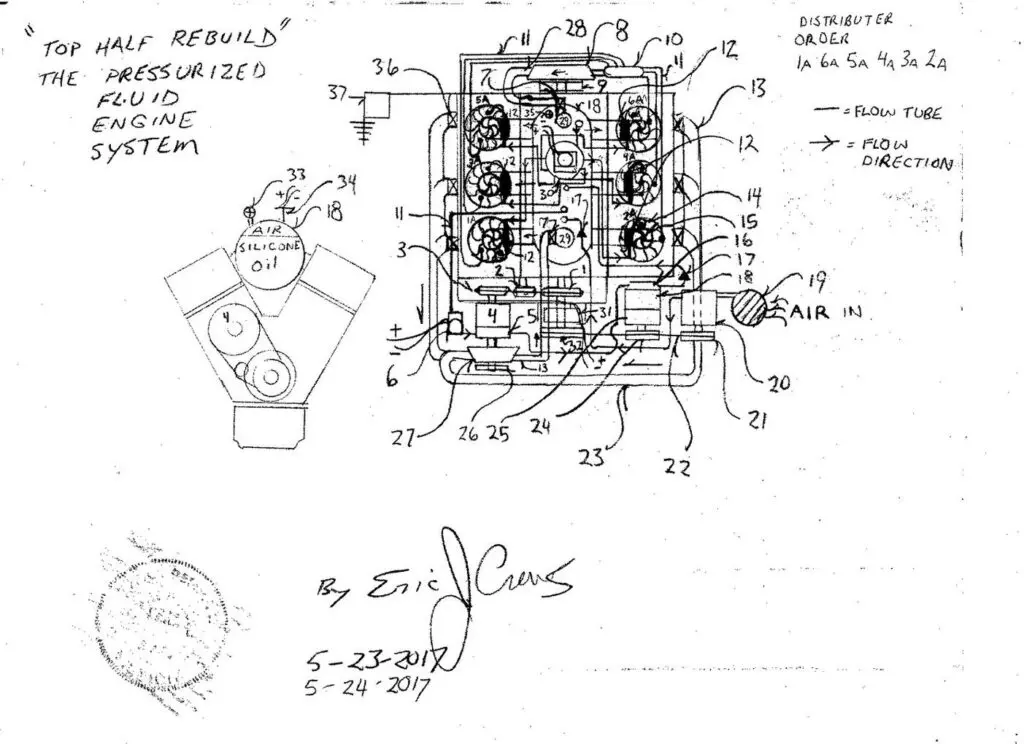 "TOP HALF REBUILD"
THE PRESSURIZED
FLUID
ENGINE
SYSTEM
DISTRIBUTER
ORDER
1A 6A 5A 4A 3A 2A
— = FLOW TUBE
→ = FLOW
DIRECTION
11
28
8
10
11
12
13
36
37
7
9
18
5A
12
35
29
6A
4A
12
12
30
17
14
15
16
17
18
19
AIR IN
20
21
22
23
24
25
26
27
33
+ -
34
18
AIR
SILICONE
OIL
4
11
3
1A
12
17
29
2A
2
1
4
5
31
32
+
-
6
13
+
-
By Eric J Crews
5-23-2017
5-24-2017